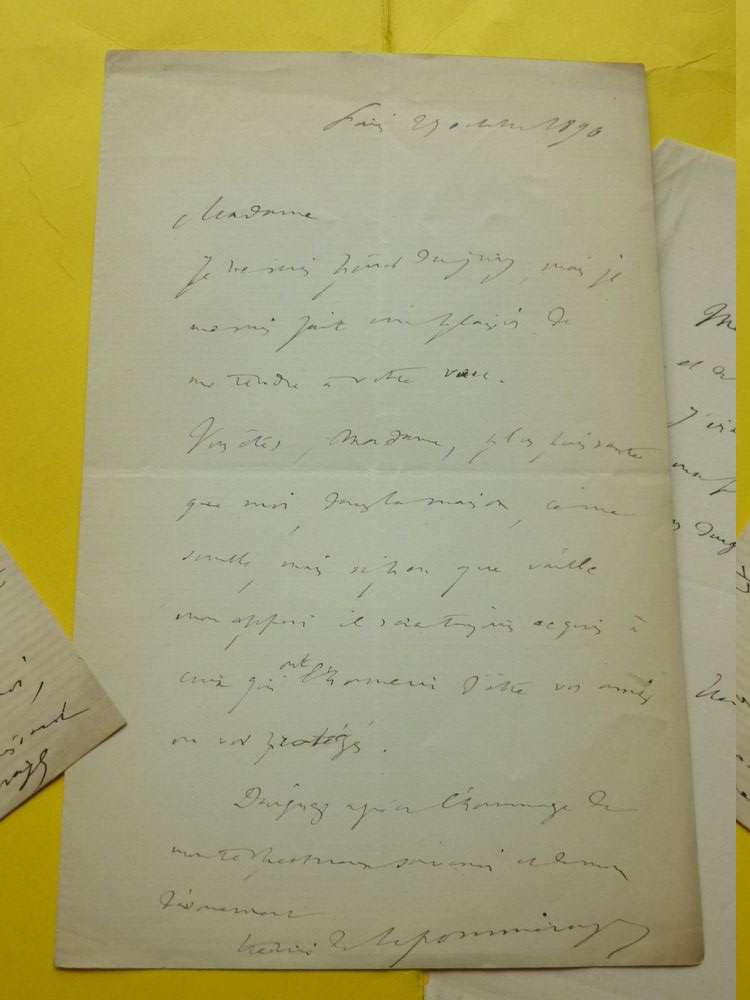 Paris 29 octobre 1890
Madame
Je ne suis point du jury, mais je
me suis fait un plaisir de
me rendre à votre vœu.
Vous êtes, Madame, plus puissante
que moi, dans la maison, ce me
semble, mais si peu que vaille
mon appui il sera toujours acquis à
ceux qui ont l'honneur d'être vos amis
ou vos protégés.
Daignez agréer l'hommage de
mon respectueux souvenir et de mon
dévouement
Henri de Lapommeraye
Ma
et de